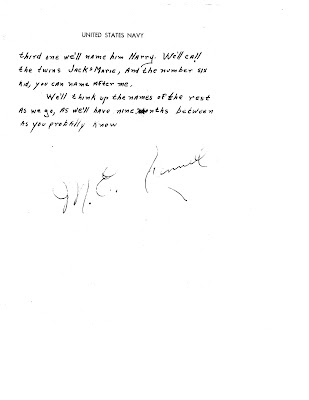 UNITED STATES NAVY
third one we'll name him Harry. We'll call
the twins Jack & Marie, And the number six
kid, you can name after me.
We'll think up the names of the rest
as we go, as we'll have nine months between
as you probally know
M. E.